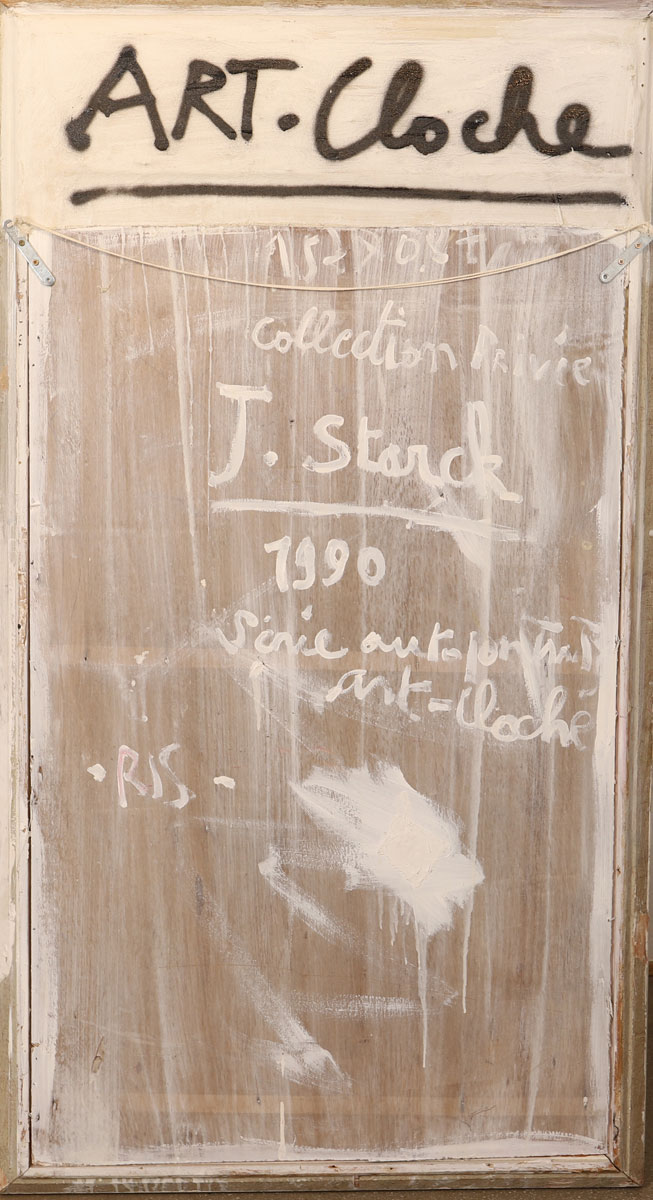 ART. Cloche
Collection Privée
J. Starck
1990
Série autoportrait
art = Cloche